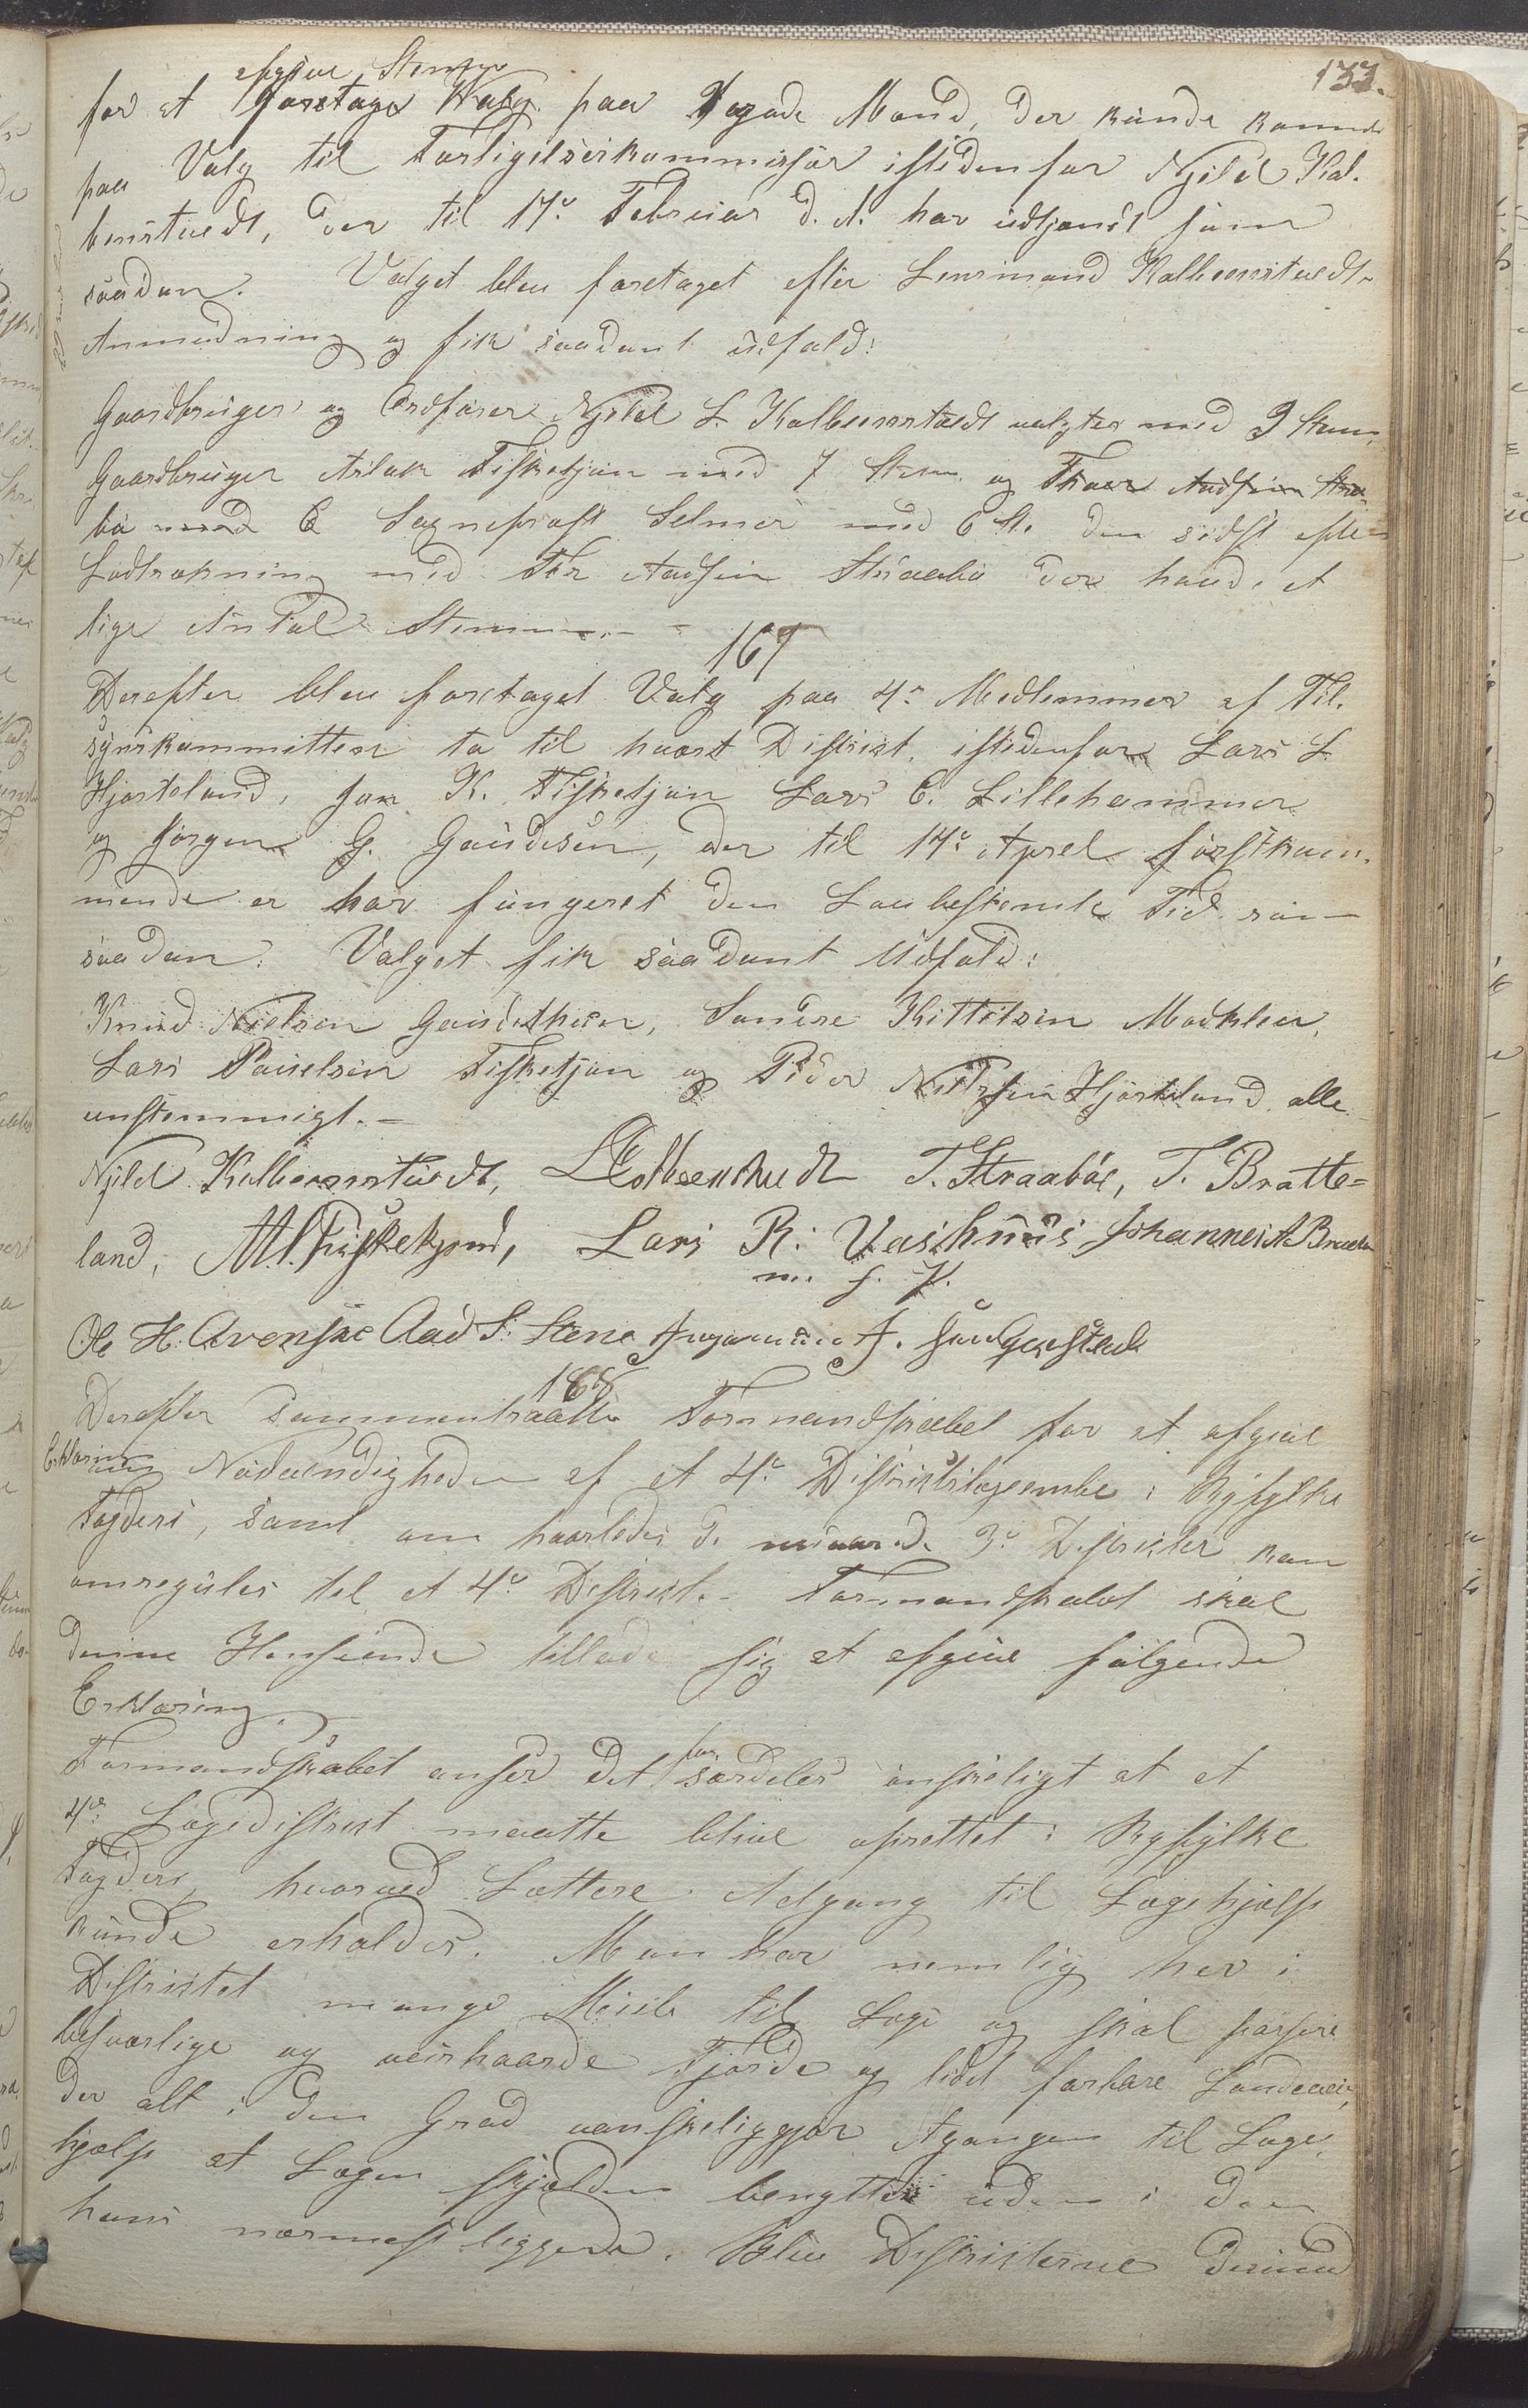 133.
afgive Stemme
for at foretage Valg paa Nogade Mænd, der kunde komme
paa Valg til Forligelseskommissær istedenfor Njeld Kol-
benstvedt, der til 17de Februar d. A. har udtjent som
saadan. Valget blev foretaget efter Lensmand Kolbenstvedts
Anmodning og fik saadant Udfald:
Gaardbruger og Ordfører Njeld L. Kolbenstvedt valgtes med 9 Stem.
Gaardbruger Aslak Fisketjøn med 7 Stem. og Thore Audsen Straa-
bø med 6 Sognepræst Selmer med 6 St. den sidste efter
Lodtrækning med Tor Audsen Straabø der havde et
lige Antal Stemmer. -
167
Derefter blev foretaget Valg paa 4re Medlemmer af Til-
synskommitteen to til hvert Distrikt, istedenfor Lars L.
Hjorteland, Jon K. Fisketjøn Lars E. Lillehammer
og Jørgen G. Goudesen, der til 14de April førstkom-
mende er har fungeret den Lovbestemte Tid som
saadan. Valget fik saadant Udfald:
Knud Nielsen Goudethein, Sondre Kittelsen Moekleiv,
Lars Paulsen Fisketjøn og Peder Nielssen Hjorteland, alle
enstemmigt. -
Njeld Kolbeenstvedt, LKolbenstvedt T. Straabøe, T. Bratte=
land, A. Fiskekjønd, Lars R. Vashuus Johannes A Braten
m. f. P.
Ole H. Arensje Aad S. Stene Ingemund J.
168
Derefter sammentraadte Formandskabet for at afgive
Erklæring
om Nødvendigheden af et 4de Distriktslægeembe i Ryfylke
Fogderi, samt om hvorledes de nuværende 3de Distrikter kan
omreguleres til et 4de Distrikt. - Formandskabet skal
denne Henseende tillade sig at afgive følgende
Erklæring.
Formandskabet anser det for særdeles ønskeligt at et
4de Lægedistrikt maatte blive oprettet i Ryfylke
Fogderi, hvorved Lettere Adgang til Lægehjælp
kunde erholdes. Man har nemlig her i
Distriktet mange Miile til Læge og skal passere
besværlige og veirhaarde Fjorde og lidet farbare Landeveie,
der alt i den Grad vanskeliggjør Agangen til Læge-
hjælp at Lægen sjelden benyttes uden i den
ham nærmest liggende. Blev Distrikterne derimod